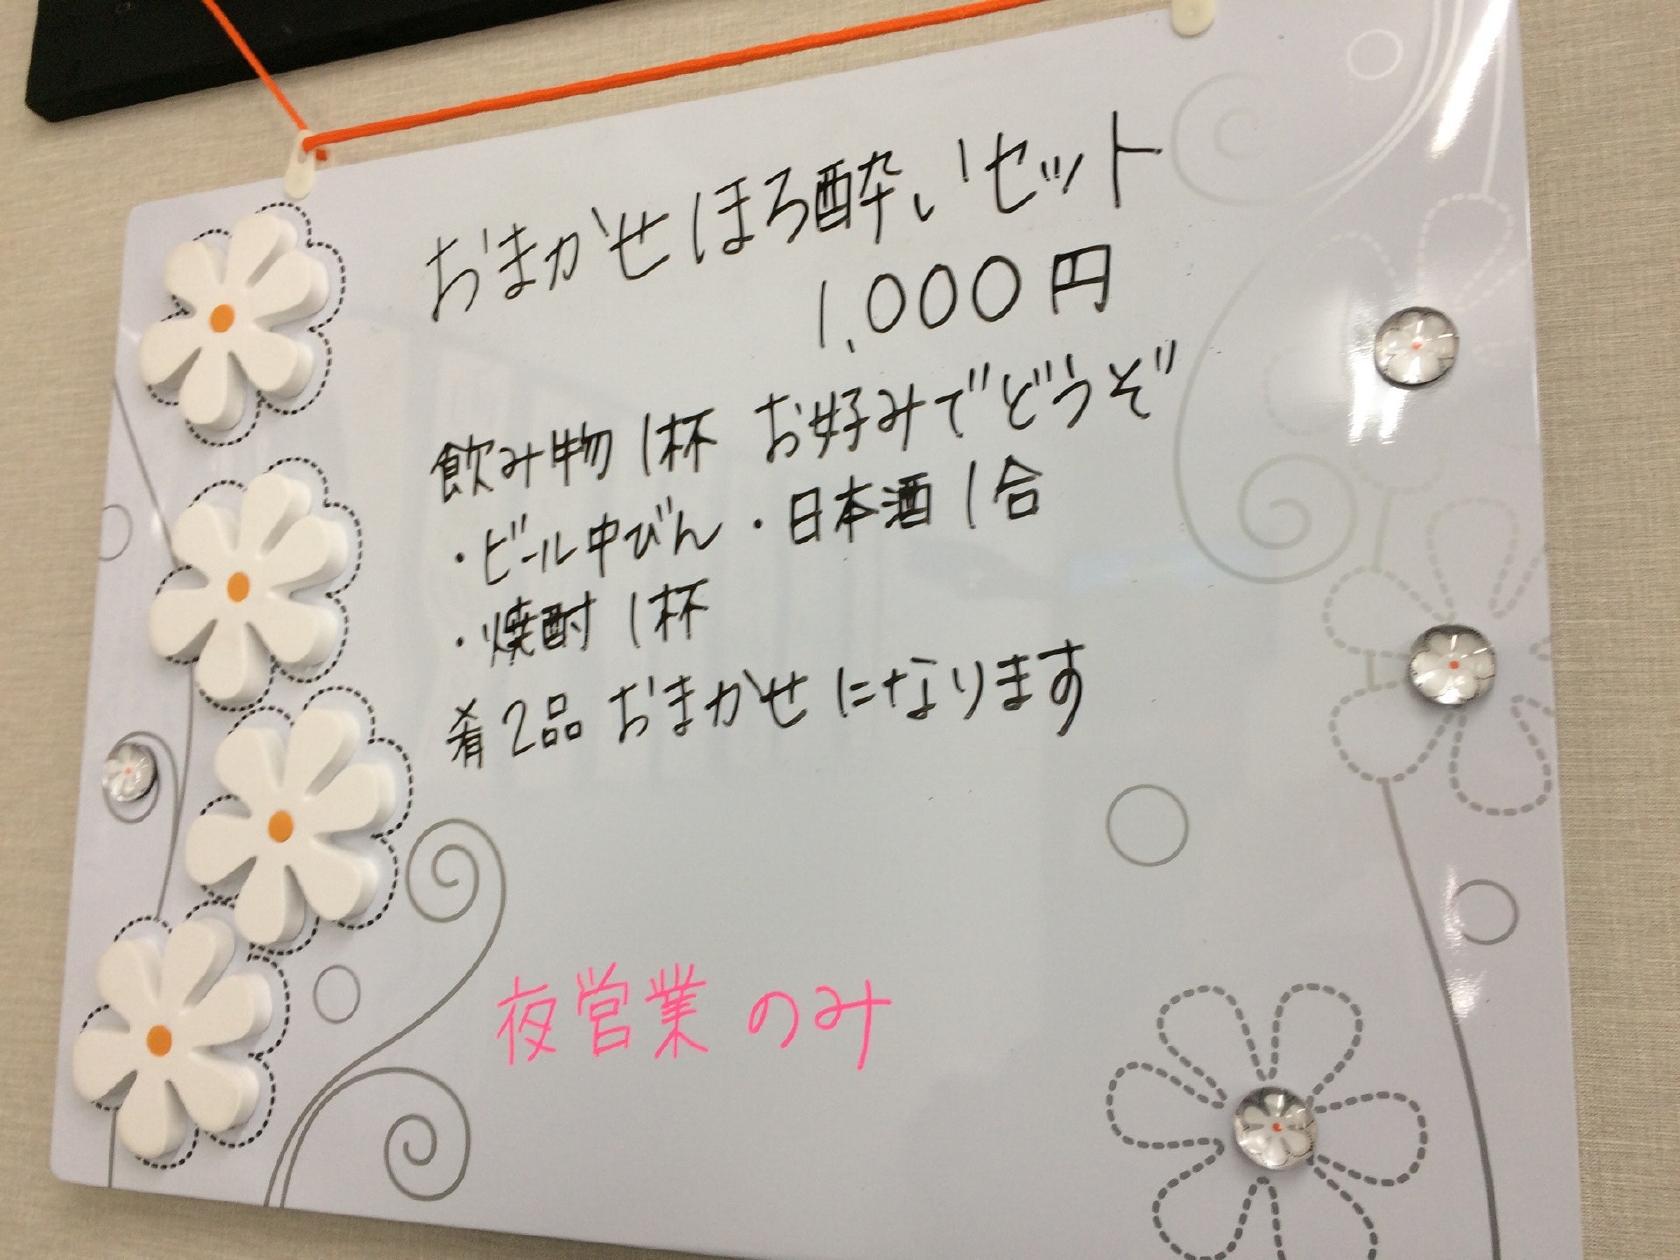 おまかせほろ酔いセット
1,000円
飲み物 1杯 お好みでどうぞ
・ビール中びん ・日本酒 1合
・焼酎 1杯
肴 2品 おまかせになります
夜営業のみ